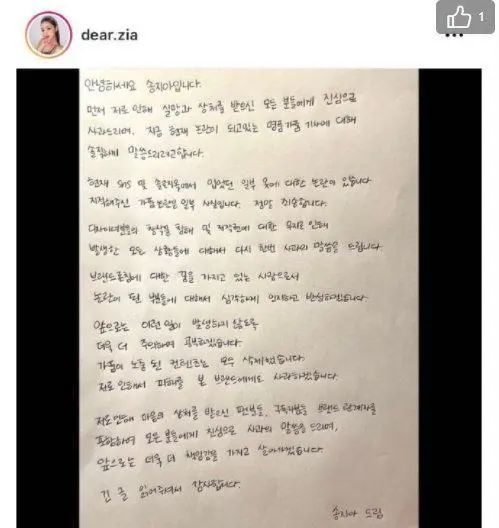 1
dear.zia
안녕하세요 송지아입니다.
먼저 저로 인해 실망과 상처를 받으신 모든 분들에게 진심으로
사과드리며, 지금 현재 논란이 되고있는 명품가품 기사에 대해
솔직하게 말씀드리려고합니다.
현재 SNS 및 솔로지옥에서 입었던 일부 옷에 대한 논란이 있습니다
지적해주신 가품논란은 일부 사실입니다. 정말 죄송합니다.
디자이너분들의 창작물 침해 및 저작권에 대한 무지로 인해
발생한 모든 상황들에 대해서 다시 한번 사과의 말씀을 드립니다.
브랜드론칭에 대한 꿈을 가지고 있는 사람으로서
논란이 된 부분들에 대해서 심각하게 인지하고 반성하겠습니다
앞으로는 이런 일이 발생하지 않도록
더욱 더 주의하며 공부하겠습니다.
가품이 노출 된 컨텐츠는 모두 삭제했습니다.
저로 인해서 피해를 본 브랜드에게도 사과하겠습니다.
저로인해 마음의 상처를 받으신 팬분들, 구독자분들 브랜드 관계자를
포함하여 모든 분들에게 진심으로 사과의 말씀을 드리며,
앞으로는 더욱 더 책임감을 가지고 살아가겠습니다.
긴 글 읽어주셔서 감사합니다.
송지아 드림